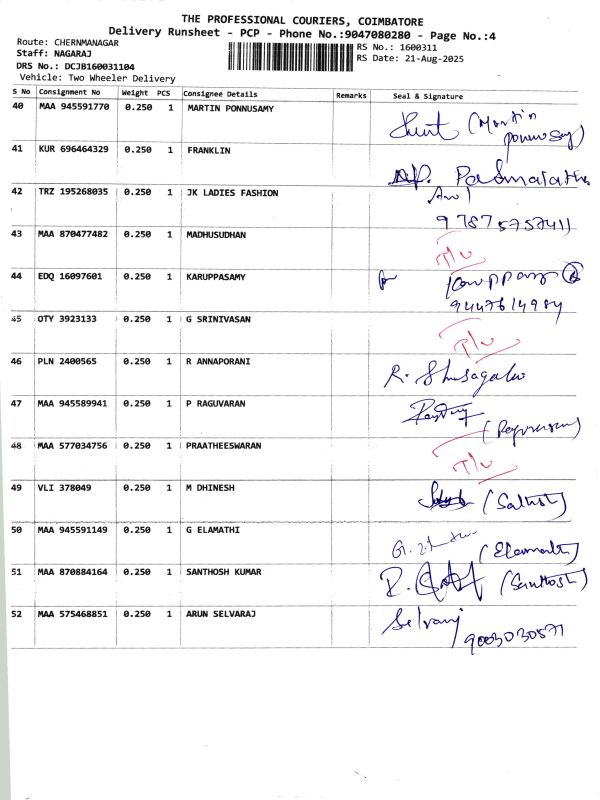 THE PROFESSIONAL COURIERS, COIMBATORE
Delivery Runsheet - PCP - Phone No.:9047080280 - Page No.:4
Route: CHERNMANAGAR
RS No.: 1600311
Staff: NAGARAJ
RS Date: 21-Aug-2025
DRS No.: DCJB160031104
Vehicle: Two Wheeler Delivery
S No Consignment No Weight PCS Consignee Details Remarks Seal & Signature
40 MAA 945591770 0.250 1 MARTIN PONNUSAMY
(Martin
ponnusay)
41 KUR 696464329 0.250 1 FRANKLIN
42 TRZ 195268035 0.250 1 JK LADIES FASHION
43 MAA 870477482 0.250 1 MADHUSUDHAN
T/U
44 EDQ 16097601 0.250 1 KARUPPASAMY
9447614984
45 OTY 3923133 0.250 1 G SRINIVASAN
T/U
46 PLN 2400565 0.250 1 R ANNAPORANI
47 MAA 945589941 0.250 1 P RAGUVARAN
48 MAA 577034756 0.250 1 PRAATHEESWARAN
T/U
49 VLI 378049 0.250 1 M DHINESH
50 MAA 945591149 0.250 1 G ELAMATHI
51 MAA 870884164 0.250 1 SANTHOSH KUMAR
(Santhosh)
52 MAA 575468851 0.250 1 ARUN SELVARAJ
Selvaraj
9003030571